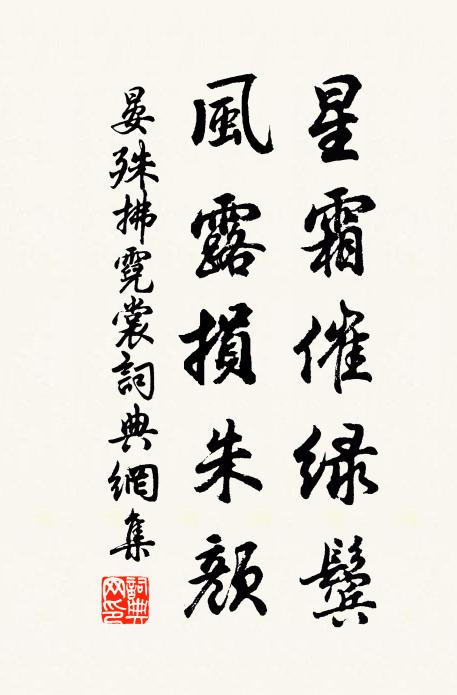 星霜催绿鬓
風露損朱顔
晏殊拂霓裳詞典網集
詞典網印